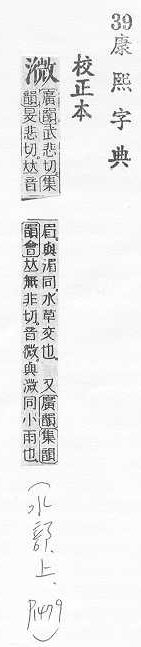 39康熙字典
校正本
溦
廣韻武悲切集
韻旻悲切𠀤音
眉與湄同水草交也 又廣韻集韻
韻會𠀤無非切音微與溦同小雨也
(水部.上. P1479)